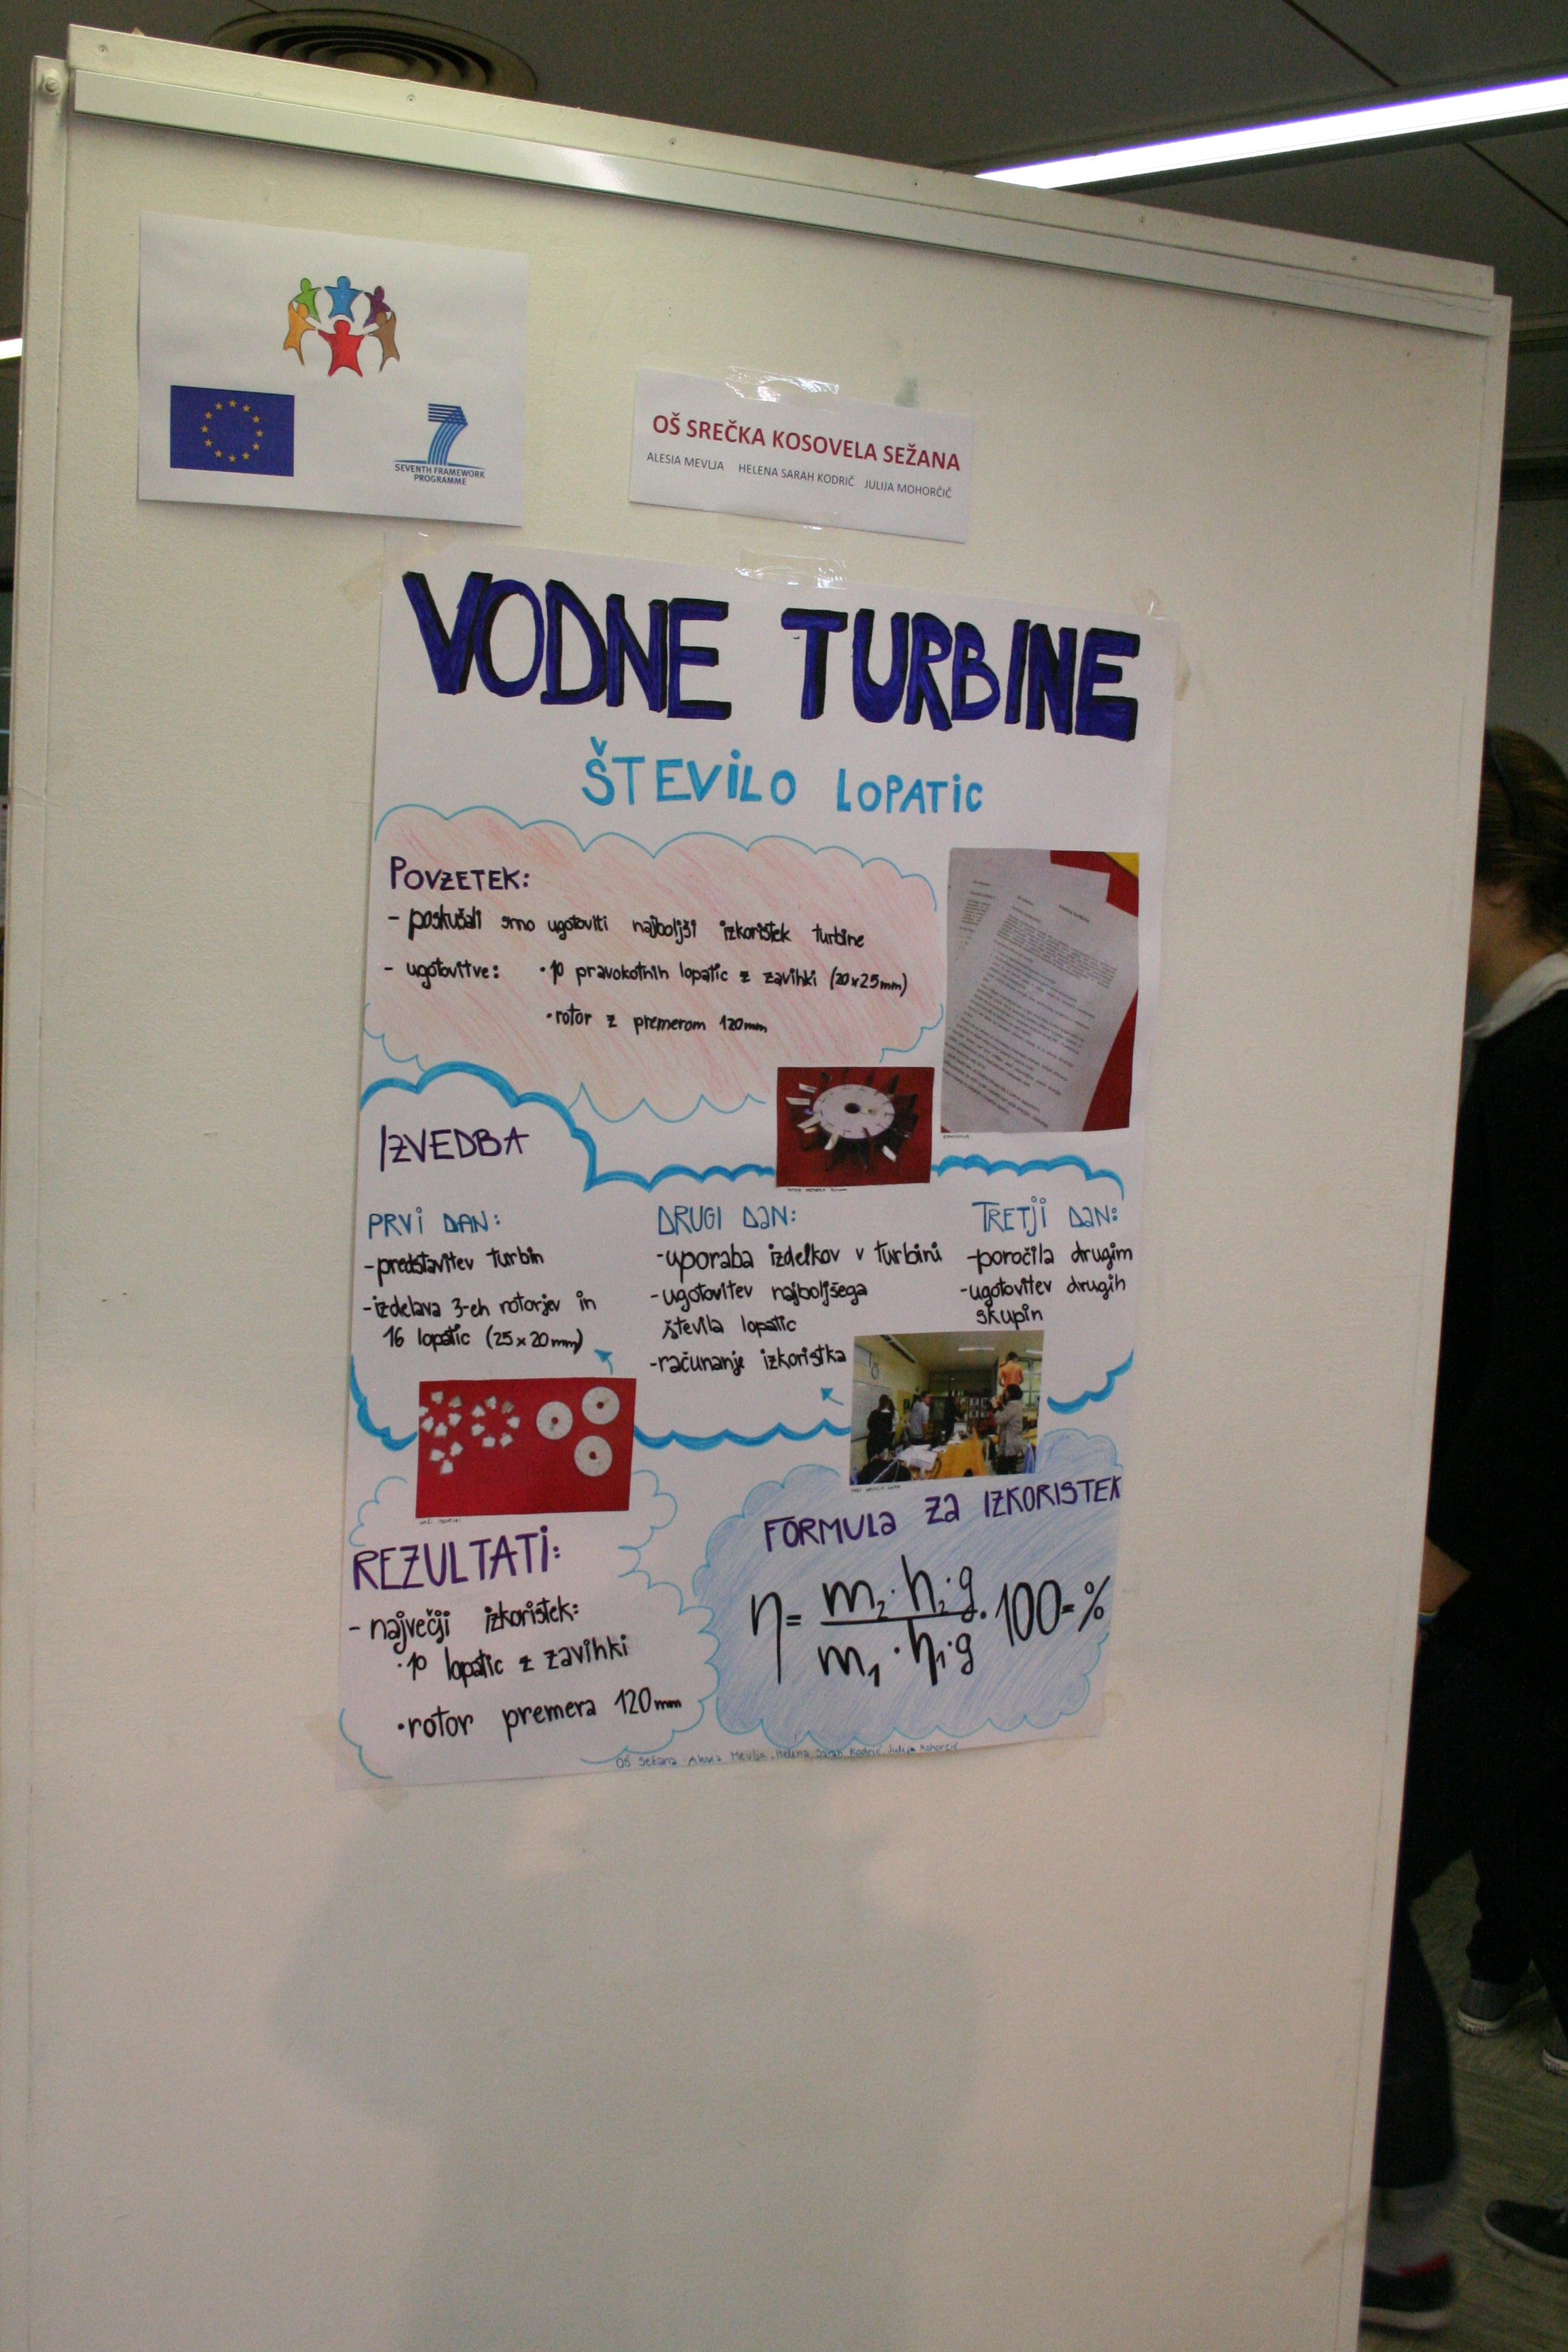 7
SEVENTH FRAMEWORK
PROGRAMME
OŠ SREČKA KOSOVELA SEŽANA
ALESIA MEVLJA HELENA SARAH KODRIČ JULIJA MOHORČIČ
VODNE TURBINE
ŠTEVILO LOPATIC
POVZETEK:
- poskušali smo ugotoviti najboljši izkoristek turbine
- ugotovitve: • 10 pravokotnih lopatic z zavihki (20x25mm)
• rotor z premerom 120mm
IZVEDBA
PRVI DAN:
- predstavitev turbin
- izdelava 3-eh rotorjev in
16 lopatic (25x20mm)
DRUGI DAN:
- uporaba izdelkov v turbini
- ugotovitev najboljšega
števila lopatic
- računanje izkoristka
TRETJI DAN:
- poročila drugim
- ugotovitev drugih
skupin
REZULTATI:
- največji izkoristek:
• 10 lopatic z zavihki
• rotor premera 120mm
FORMULA ZA IZKORISTEK
η = m₂·h₂·g / m₁·h₁·g · 100 = %
OŠ Sežana Alesia Mevlja, Helena Sarah Kodrič, Julija Mohorčič